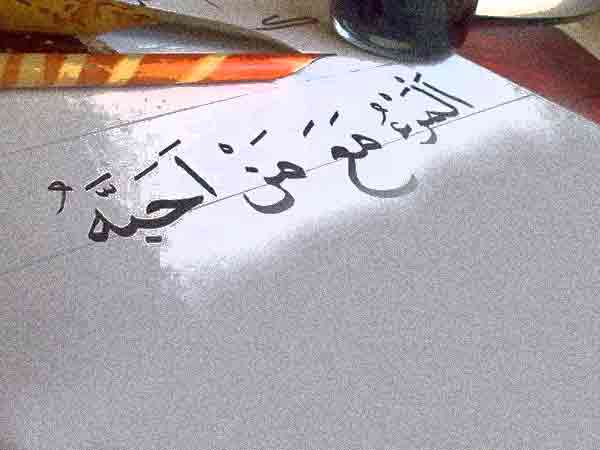 اَلْمَرْءُ مَعَ مَنْ اَحَبَّهُ